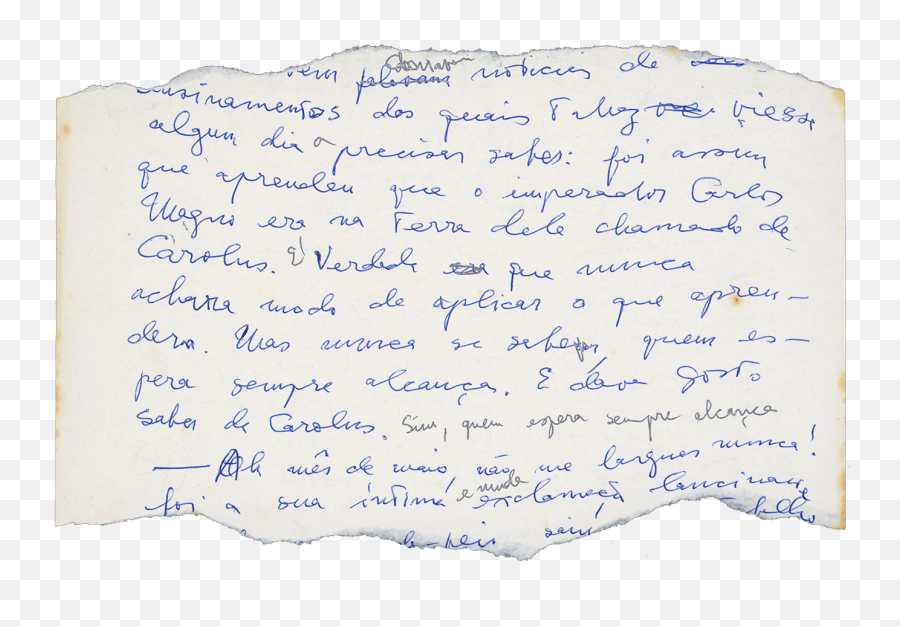 notícias de
ensinamentos dos quais Talvez viesse
algum dia a precisar saber: foi assim
que aprendeu que o imperador Carlos
Magno era na Terra dele chamado de
Carolus. É Verdade que nunca
achara modo de aplicar o que apren-
dera. Mas nunca se sabe, quem es-
pera sempre alcança. E dava gosto
saber de Carolus. Sim, quem espera sempre alcança
— Ah mês de maio, não me largues nunca!
foi a sua íntima e muda exclamação